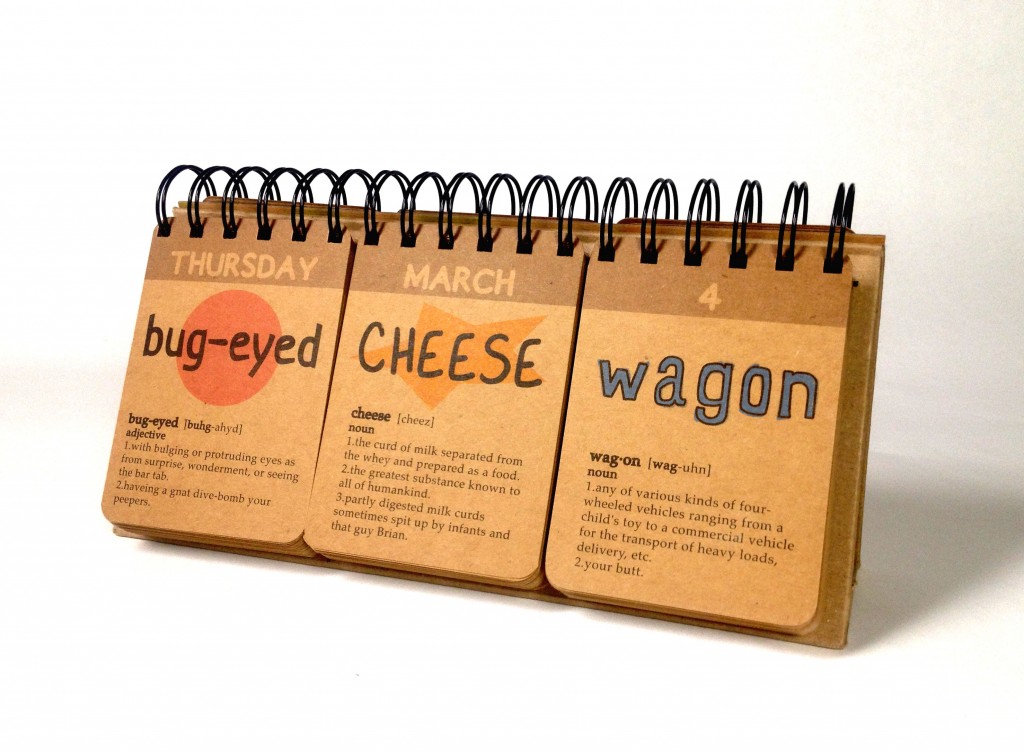 THURSDAY
bug-eyed
bug-eyed [buhg-ahyd]
adjective
1.with bulging or protruding eyes as
from surprise, wonderment, or seeing
the bar tab.
2.haveing a gnat dive-bomb your
peepers.
MARCH
CHEESE
cheese [cheez]
noun
1.the curd of milk separated from
the whey and prepared as a food.
2.the greatest substance known to
all of humankind.
3.partly digested milk curds
sometimes spit up by infants and
that guy Brian.
4
wagon
wag·on [wag-uhn]
noun
1.any of various kinds of four-
wheeled vehicles ranging from a
child's toy to a commercial vehicle
for the transport of heavy loads,
delivery, etc.
2.your butt.